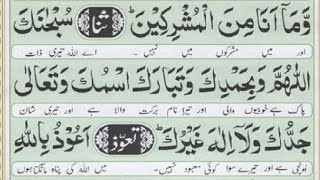 وَّمَآ اَنَا مِنَ الْمُشْرِكِيْنَ ؕ ثنا سُبْحٰنَكَ
اور میں مشرکوں میں نہیں۔ اے اللہ تیری ذات
اللّٰهُمَّ وَبِحَمْدِكَ وَتَبَارَكَ اسْمُكَ وَتَعَالٰى
پاک ہے خوبیوں والی اور تیرا نام برکت والا ہے اور تیری شان
جَدُّكَ وَلَآ اِلٰهَ غَيْرُكَ ؕ تعوّذ اَعُوْذُ بِاللّٰهِ
اونچی ہے اور تیرے سوا کوئی معبود نہیں۔ میں اللہ کی پناہ مانگتا ہوں